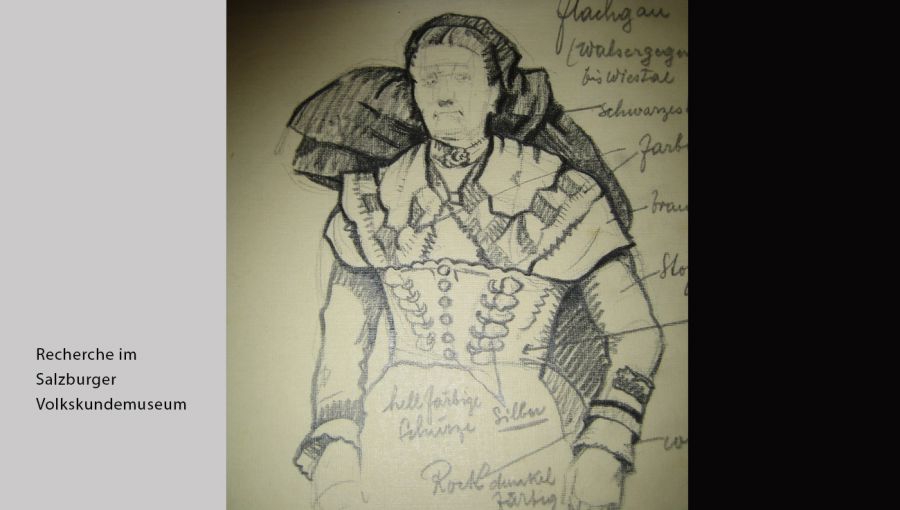 Recherche im
Salzburger
Volkskundemuseum
Flachgau
(Walsergegen
bis Wiestal
schwarzes
Farb
brau
Sto
hellfärbige
Schürze
Silber
Rock dunkel
färbig